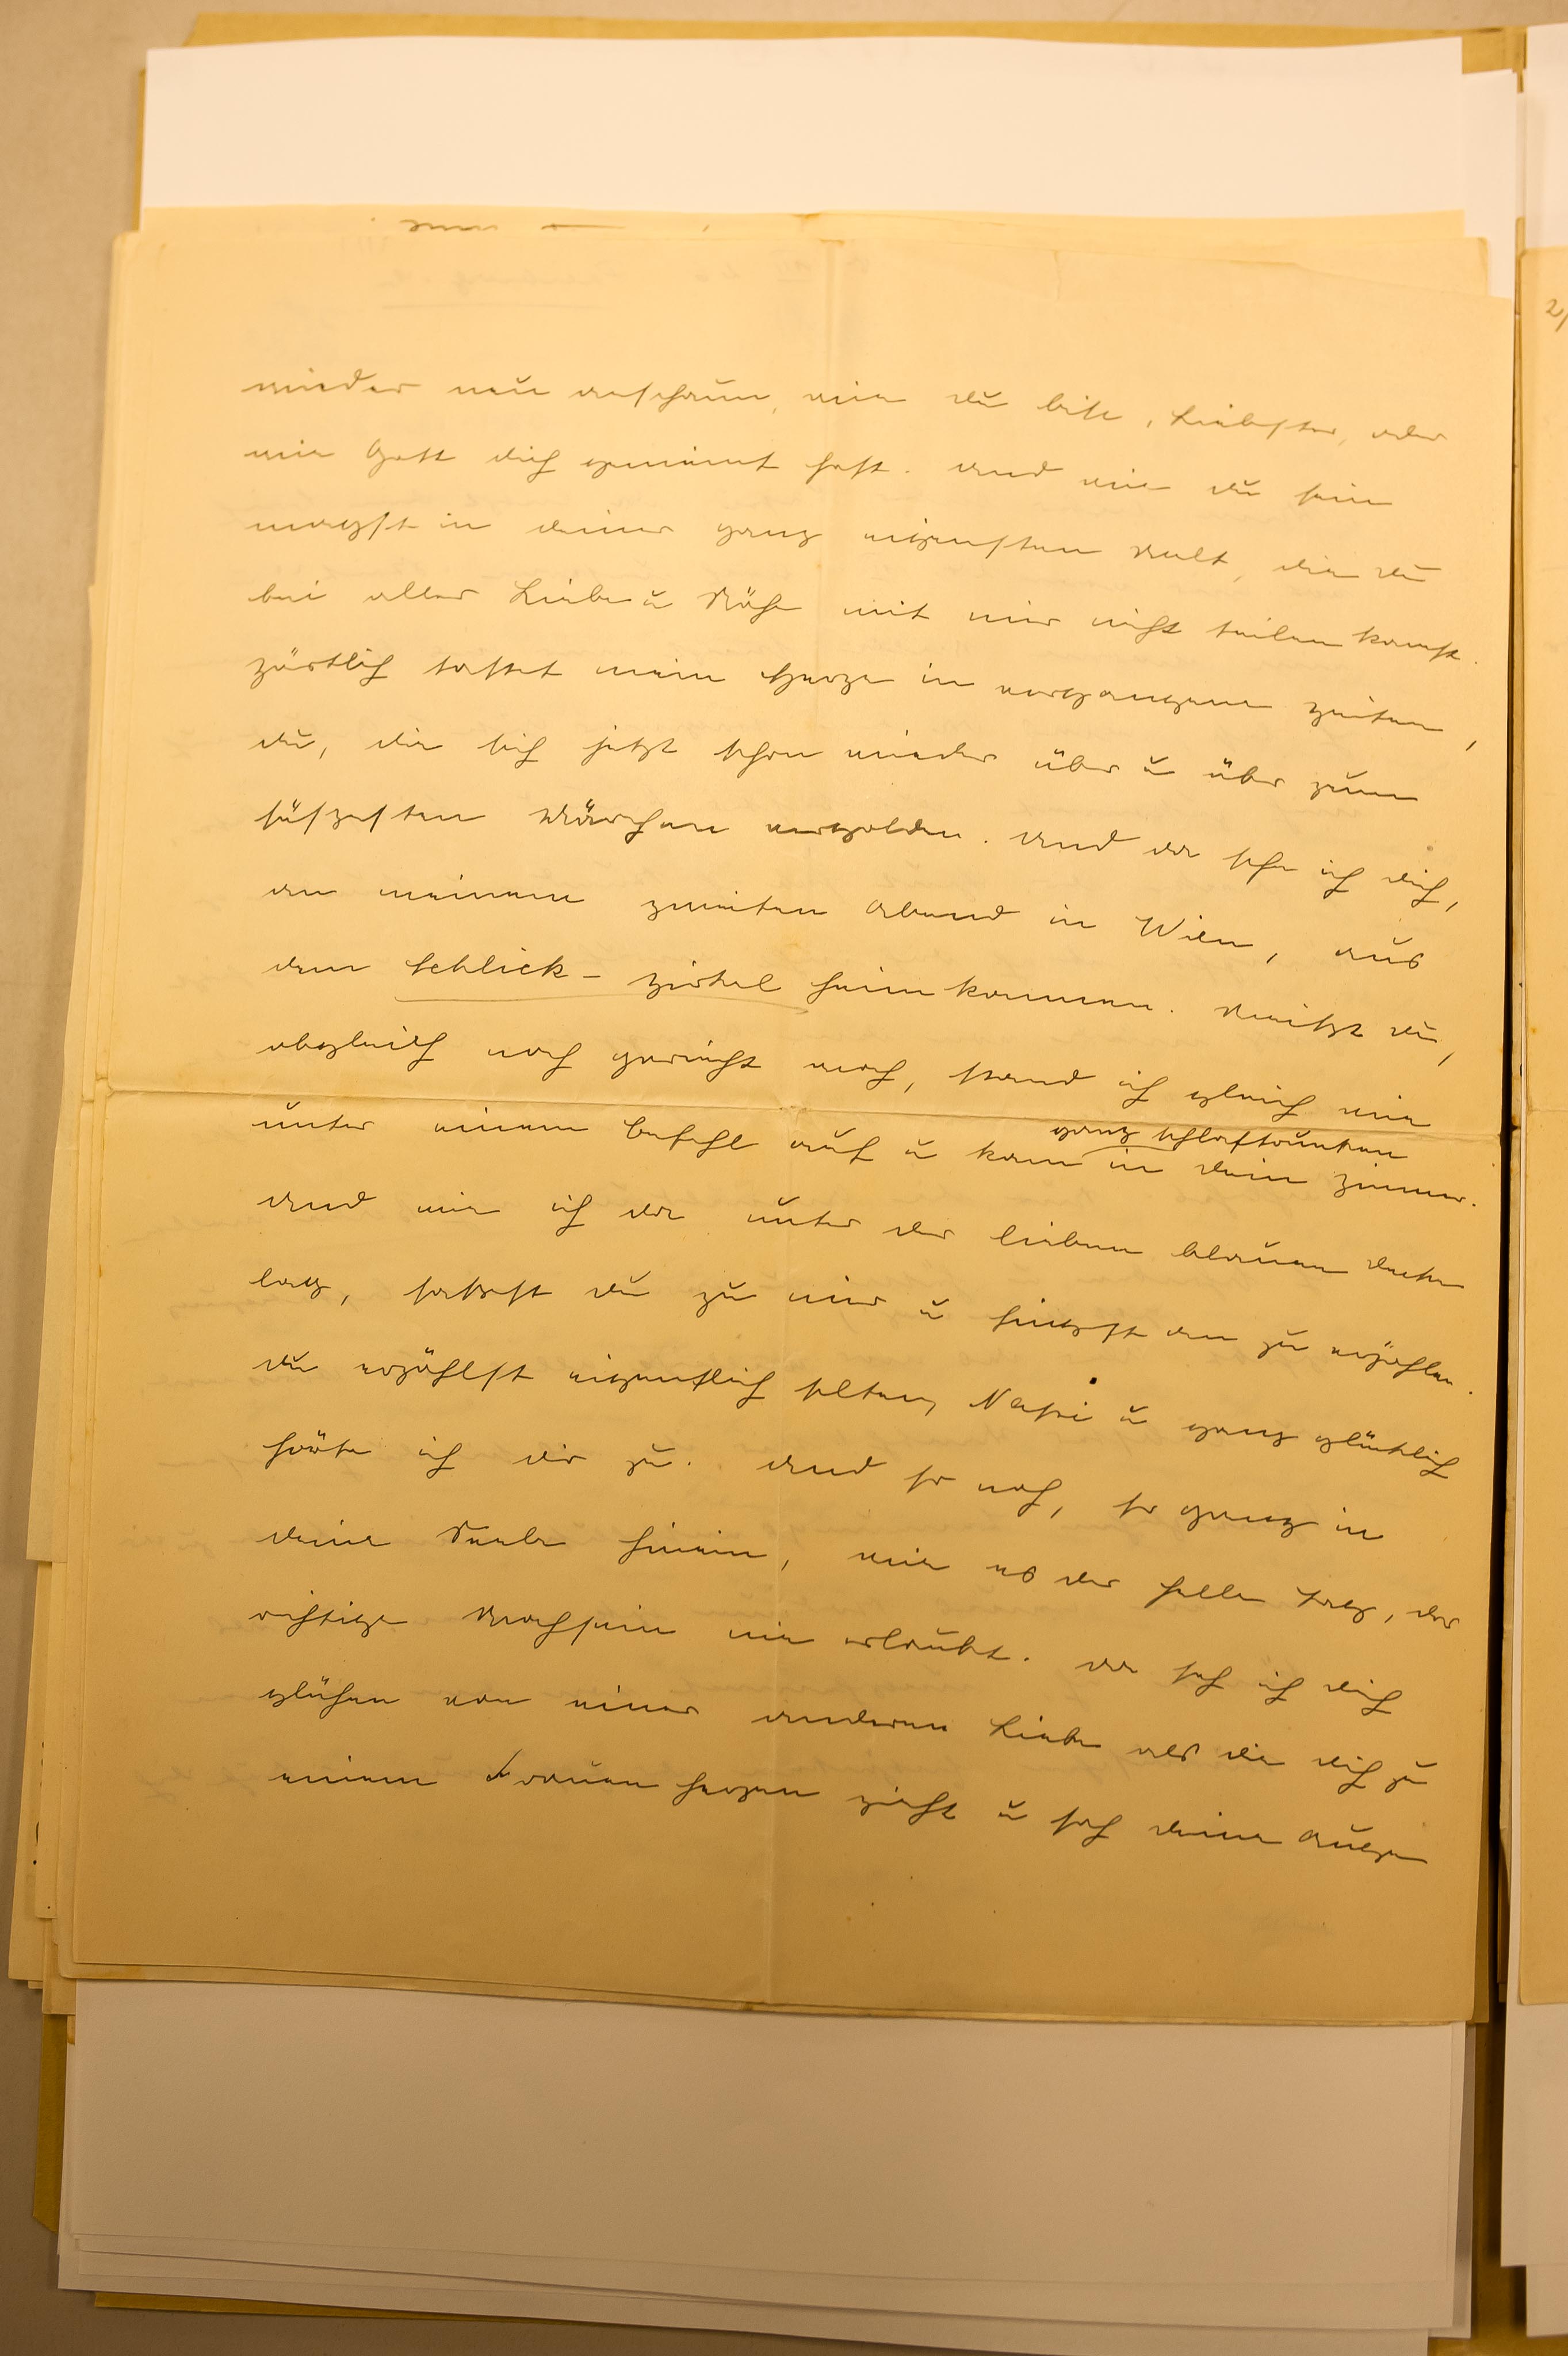 wieder neu anschaun, wie du bist, Liebster, oder
wie Gott dich gemeint hat. Und wie du sein
magst in deiner ganz eigensten Welt, die du
bei aller Liebe u Nähe mit mir nicht teilen kannst.
Zärtlich tastet mein Herze in vergangene Zeiten,
du, die sich jetzt schon wieder über u über zum
süssesten Märchen vergolden. Und da seh ich dich,
an meinem zweiten Abend in Wien, aus
dem Schlick-Zirkel heimkommen. Weisst du,
obgleich noch gar nicht wach, stand ich gleich wie
unter einem Befehl auf u kam ganz schlaftrunken in dein Zimmer.
Und wie ich da unter der lieben blauen Decke
lag, sasst du zu mir u fingst an zu erzählen.
du erzählst eigentlich selten, u ganz glücklich
hörte ich dir zu. Und so nah, so ganz in
deine Seele hinein, wie es der helle Tag, das
richtige Wachsein nie erlaubt. Da sah ich dich
glühen von einer anderen Liebe als die dich zu
einem Frauenherzen zieht u sah deine Augen